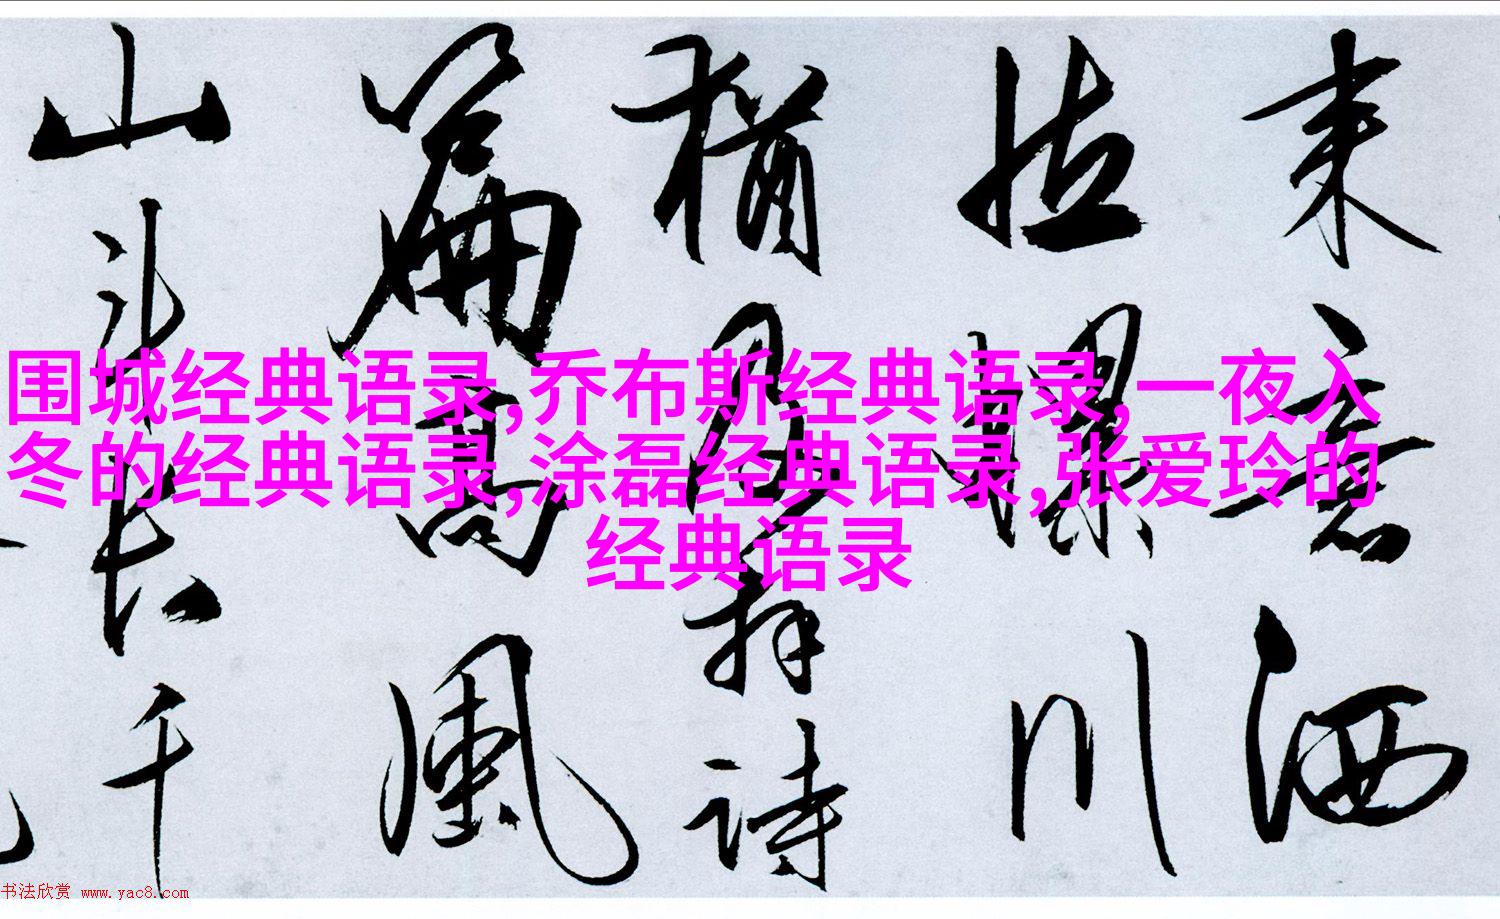 围城经典语录,乔布斯经典语录,一夜入
冬的经典语录,涂磊经典语录,张爱玲的
经典语录
来意洒
川
诗
篇高風
山斗长千
书法欣赏 www.yac8.com